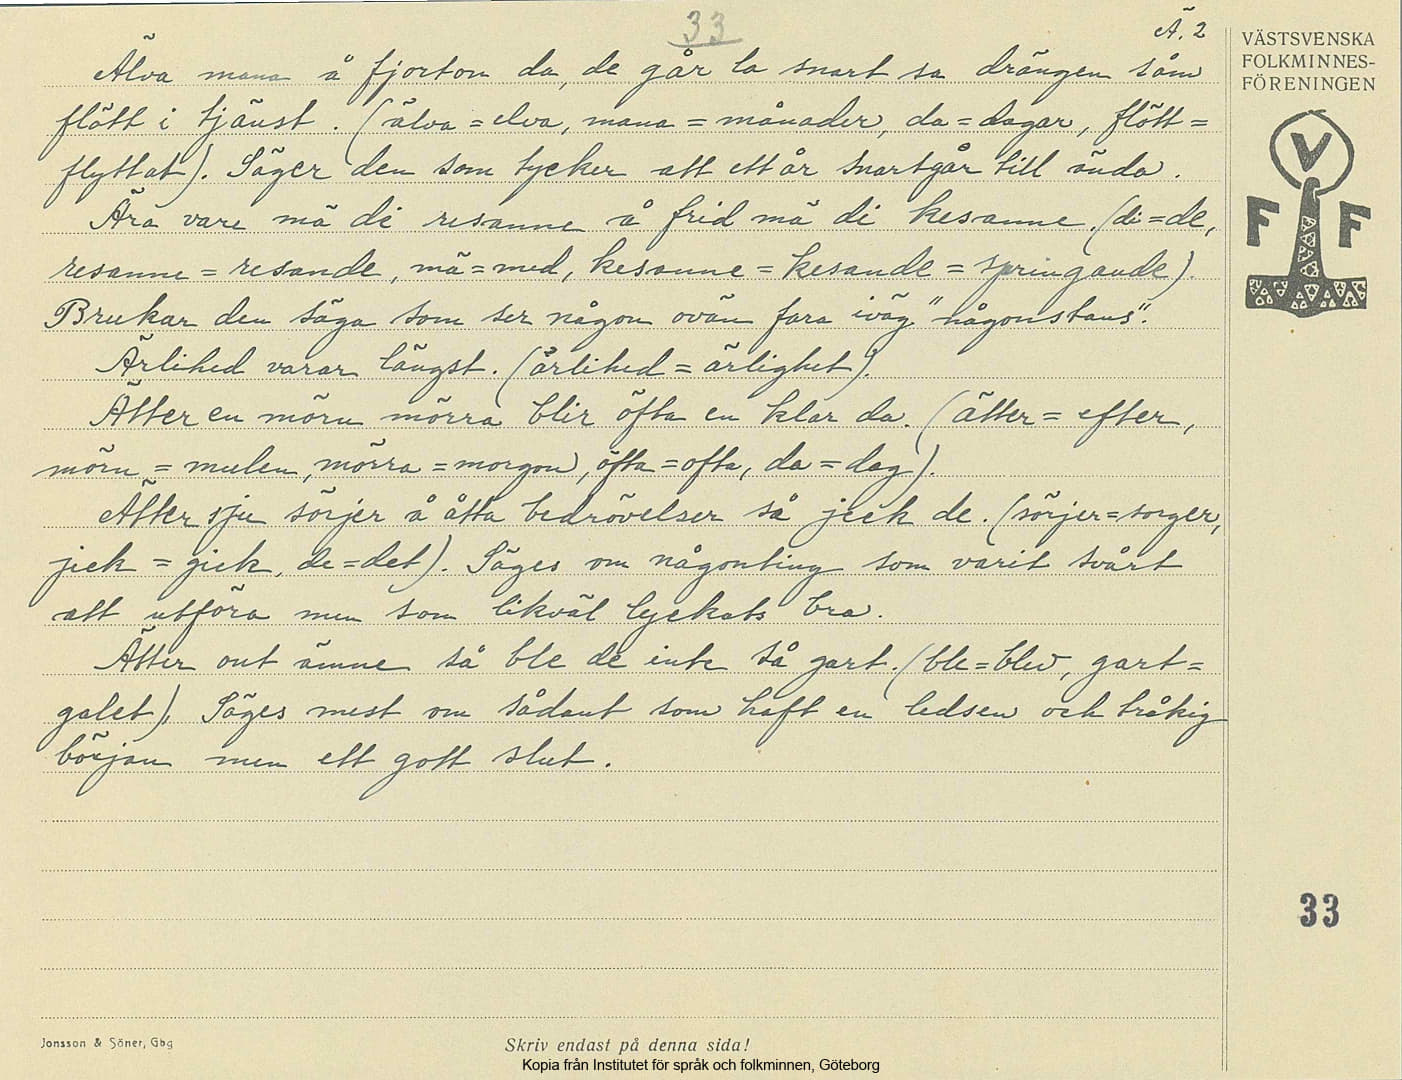 33
Ä. 2
Älva mana å fjorton da, de går la snart sa drängen såm
flött i tjänst. (älva = elva, mana = månader, da = dagar, flött =
flyttat). Säger den som tycker att ett år snart går till ända.
Ära vare mä di resanne å frid mä di kesanne. (di = de,
resanne = resande, mä = med, kesanne = kesande = springande).
Brukar den säga som ser någon ovän fara iväg "någonstans".
Ärlihed varar längst. (ärlihed = ärlighet).
Ätter en mörn mörra blir öfta en klar da. (ätter = efter,
mörn = mulen, mörra = morgon, öfta = ofta, da = dag).
Ätter sju sörjer å åtta bedrövelser så jeck de. (sörjer = sorger,
jeck = gick, de = det). Säges om någonting som varit svårt
att utföra men som likväl lyckats bra.
Ätter ont ämne så ble de inte så gart. (ble = blev, gart =
galet). Säges mest om sådant som haft en ledsen och tråkig
början men ett gott slut.
VÄSTSVENSKA
FOLKMINNES-
FÖRENINGEN
V
F F
33
Jonsson & Söner, Gbg
Skriv endast på denna sida!
Kopia från Institutet för språk och folkminnen, Göteborg